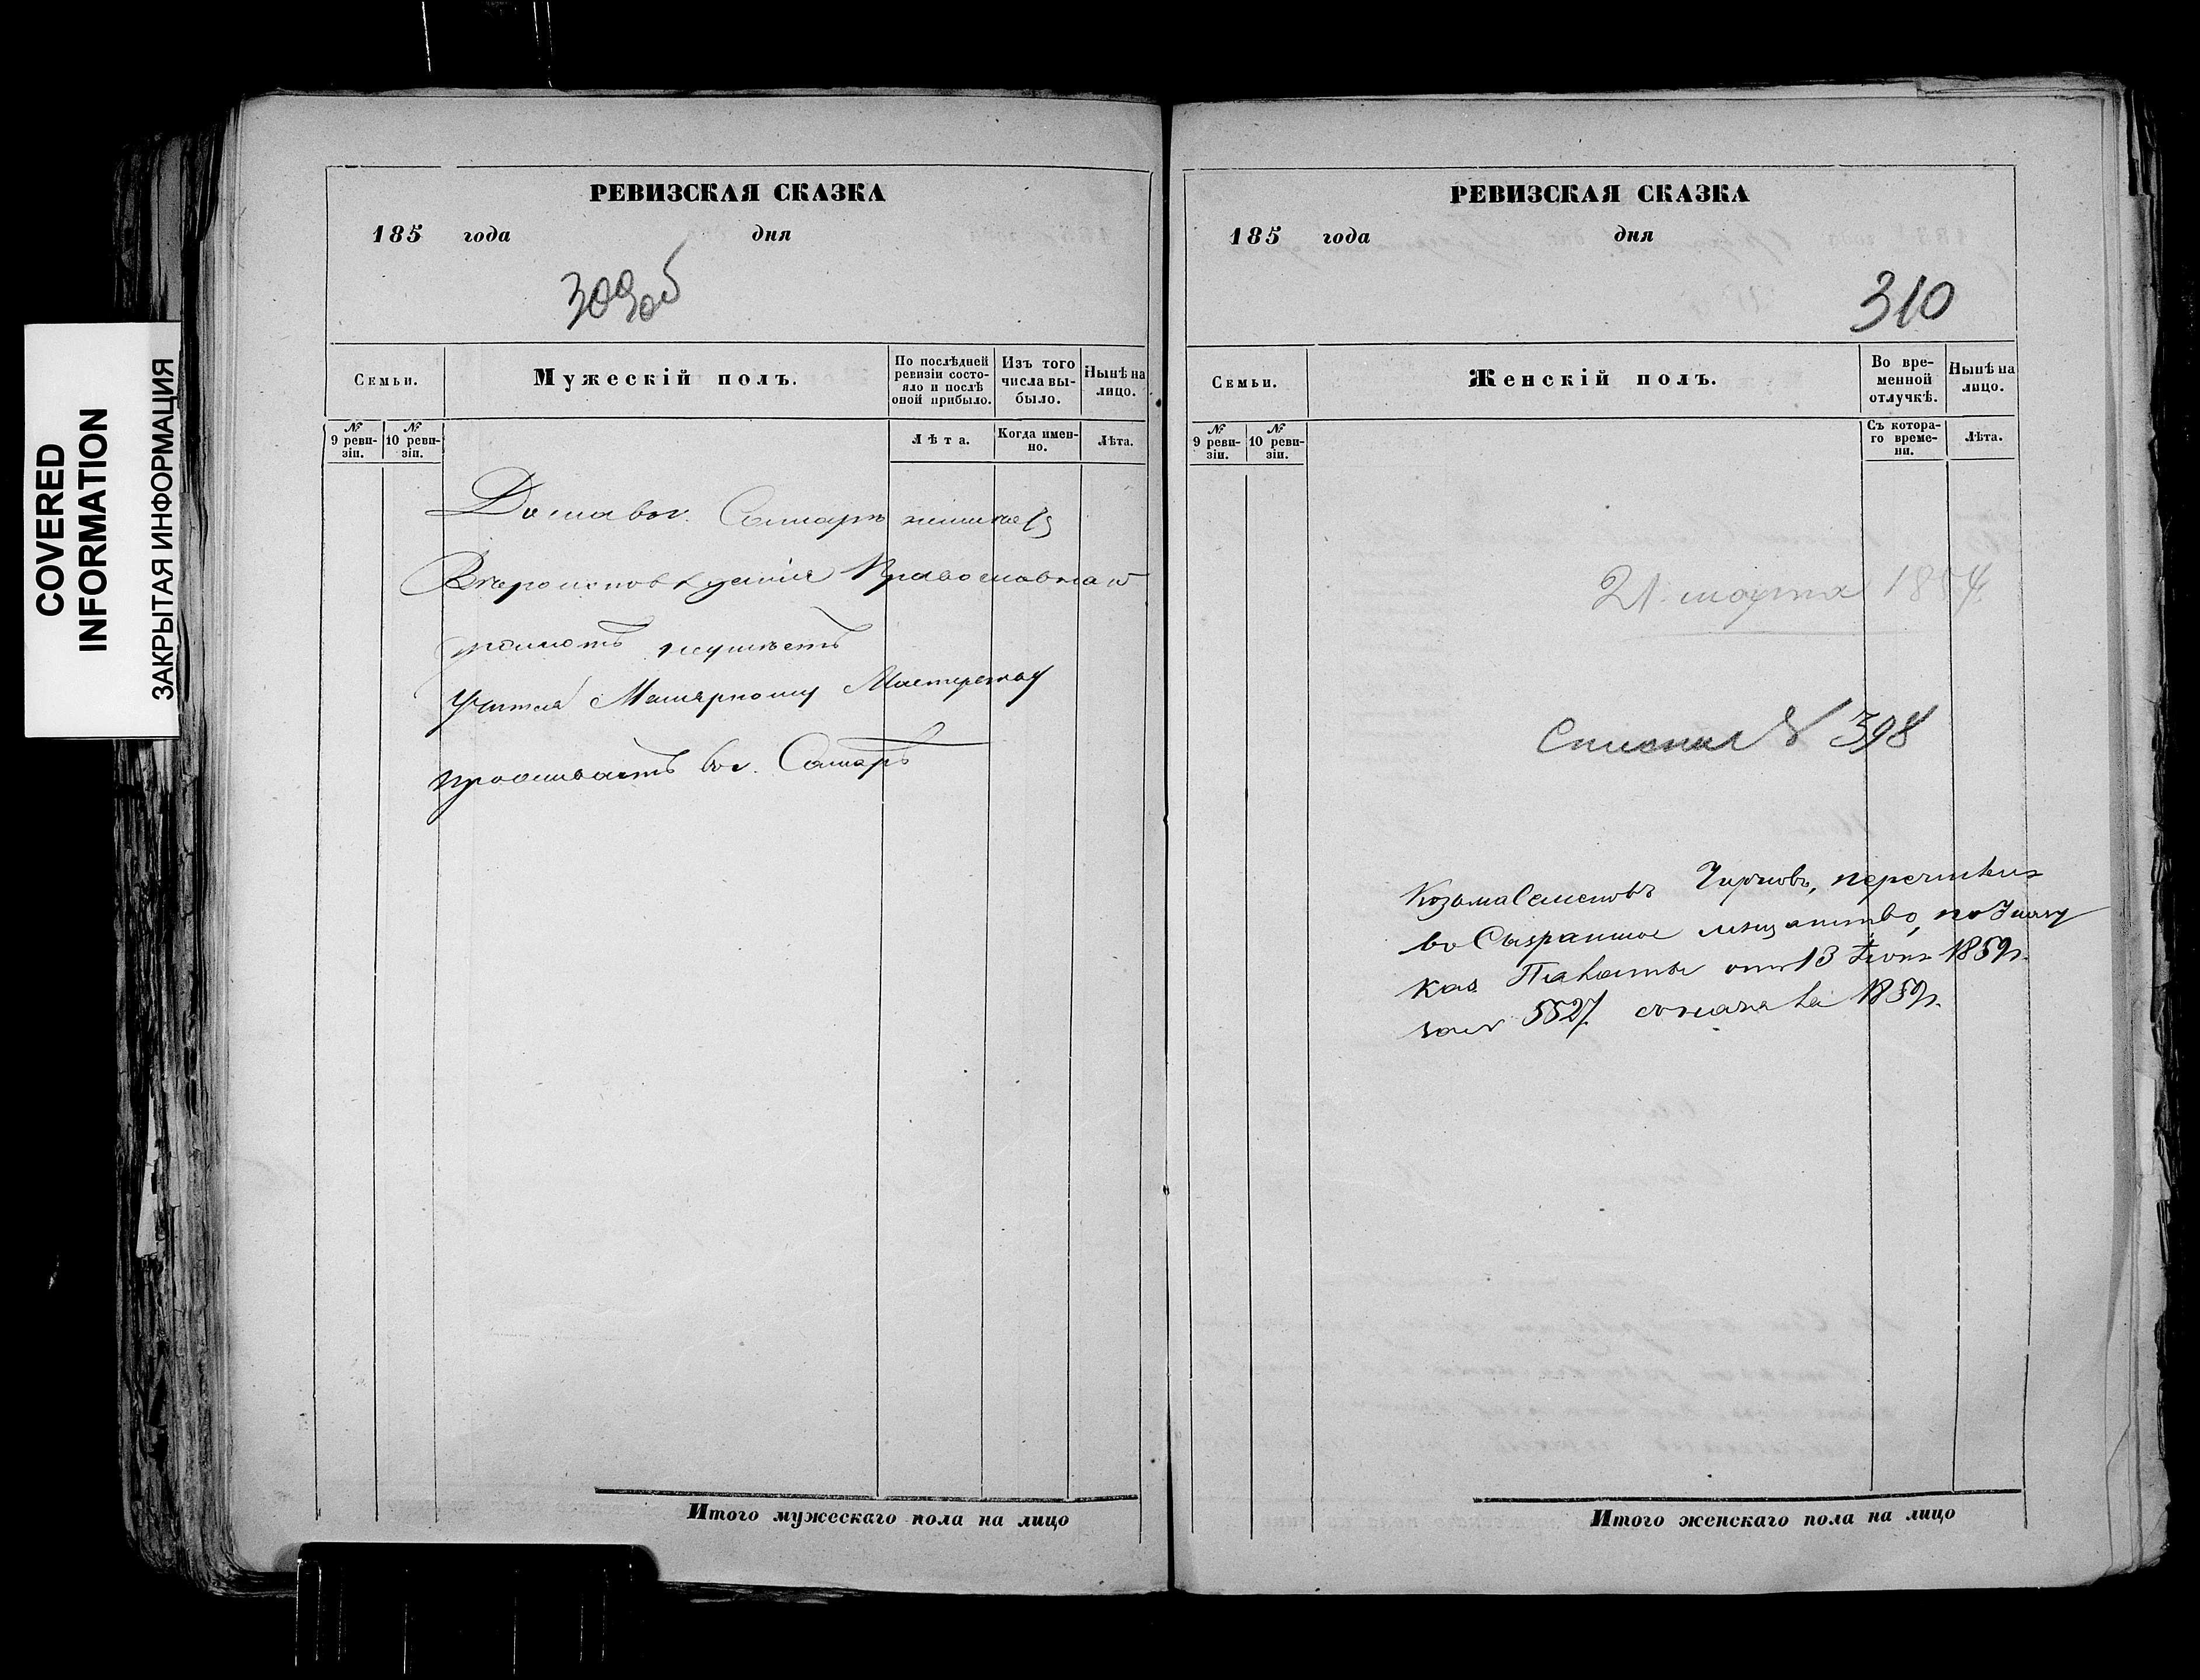 COVERED
INFORMATION
ЗАКРЫТАЯ ИНФОРМАЦИЯ
РЕВИЗСКАЯ СКАЗКА
185 года дня
309об
Семьи.
Мужескій полъ.
По послѣдней ревизіи состо-
яло и послѣ оной прибыло.
Изъ того числа вы-
было.
Нынѣ на лицо.
№ 9 реви-
зіи.
№ 10 реви-
зіи.
Лѣта.
Когда имен-
но.
Лѣта.
Дома вог. Самаре неимеетъ
Вѣроисповѣданія Православнаго
грамотѣ неумѣетъ
Малярному Мастерству
проживаетъ вог. Самарѣ
Итого мужескаго пола на лицо
РЕВИЗСКАЯ СКАЗКА
185 года дня
310
Семьи.
Женскій полъ.
Во вре-
менной отлучкѣ.
Нынѣ на лицо.
№ 9 реви-
зіи.
№ 10 реви-
зіи.
Съ котора-
го време-
ни.
Лѣта.
21 марта 1854
№ 398
Козьма Семеновъ перечисленъ
во Сызранское мещанство, по Указу
Каз Палаты отъ 13 1859г.
за № 5527 съ начала 1859г.
Итого женскаго пола на лицо